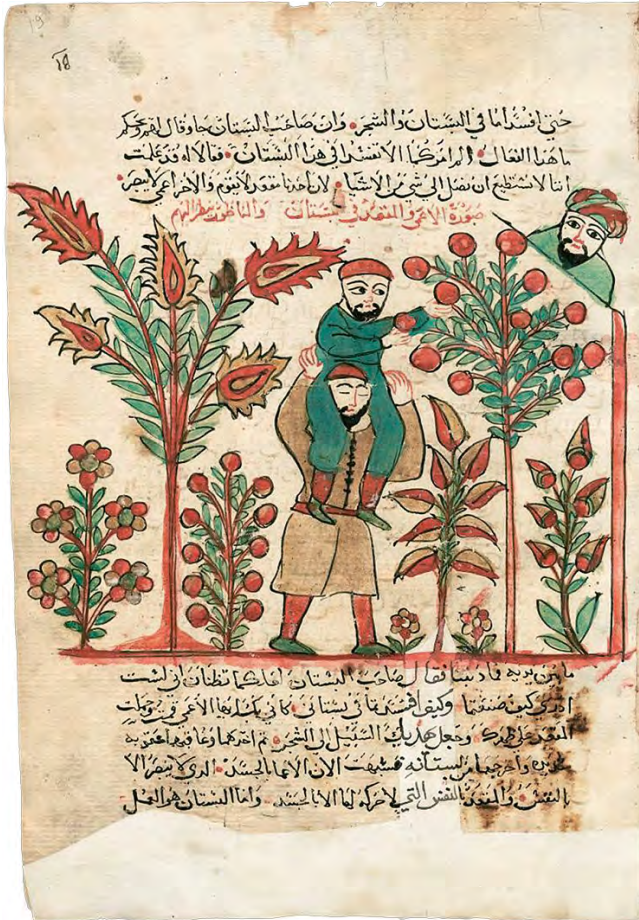 18
حتى افسدا ما في البستان والشجر • وان صاحب البستان جا وقال لهم ويحكم
ما هذا الفعال • الم امركما الا تفسدا في هذا البستان • فقالا له قد علمت
اننا لا نستطيع ان نصل الى شي من الاشيا • لان احدنا مقعد لا يقوم والاخر اعمى لا يبصر •
صورة الاعمى والمقعد في بستان والناطور ينظر اليهم
ما بين يديه فاذ فقال صاحب البستان اما كما تظنان اني لست
ادري كيف صنعتما وكيف افسدتما في بستاني • كاني بك ايها الاعمى قد حملت
المقعد على ظهرك وجعل يهديك السبيل الى الشجر • ثم اخرجهما
واخرجهما من بستانه • الان الاعما بالجسد • الذي لا يبصر الا
بالنفس • والمقعد بالنفس التي لا حركة لها الا بالجسد • واما البستان هو العمل